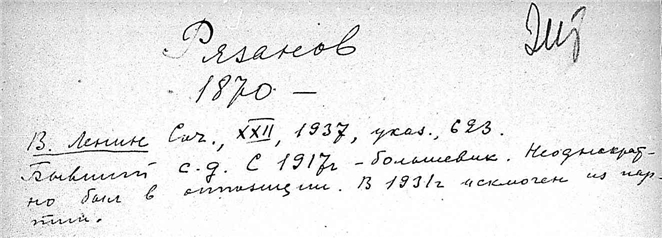 Рязанов
1870 —
В. Ленин Соч., XXII, 1937, указ., 623.
Бывший с.д. С 1917г - большевик. Неоднократ-
но был в оппозиции. В 1931г исключен из пар-
тии.